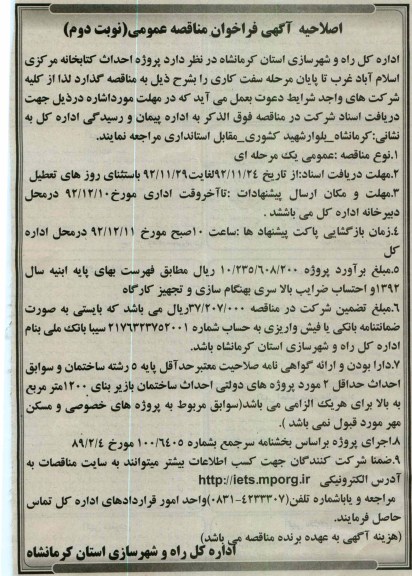 اصلاحیه آگهی فراخوان مناقصه عمومی(نوبت دوم)
اداره کل راه و شهرسازی استان کرمانشاه در نظر دارد پروژه احداث کتابخانه مرکزی
اسلام آباد غرب تا پایان مرحله سفت کاری را بشرح ذیل به مناقصه گذارد لذا از کلیه
شرکت های واجد شرایط دعوت بعمل می آید که در مهلت مورداشاره درذیل جهت
دریافت اسناد شرکت در مناقصه فوق الذکر به اداره پیمان و رسیدگی اداره کل به
نشانی:کرمانشاه_بلوارشهید کشوری_مقابل استانداری مراجعه نمایند.
۱.نوع مناقصه :عمومی یک مرحله ای
۲.مهلت دریافت اسناد:از تاریخ ۹۲/۱۱/۲۴لغایت۹۲/۱۱/۲۹ باستثنای روز های تعطیل
۳.مهلت و مکان ارسال پیشنهادات :تاآخروقت اداری مورخ۹۲/۱۲/۱۰ درمحل
دبیرخانه اداره کل می باشد .
۴.زمان بازگشایی پاکت پیشنهاد ها :ساعت ۱۰صبح مورخ ۹۲/۱۲/۱۱ درمحل اداره
کل
۵.مبلغ برآورد پروژه ۱۰/۲۳۵/۶۰۸/۲۰۰ ریال مطابق فهرست بهای پایه ابنیه سال
۱۳۹۲و احتساب ضرایب بالا سری بهنگام سازی و تجهیز کارگاه
۶.مبلغ تضمین شرکت در مناقصه ۳۷/۲۰۷/۰۰۰ریال می باشد که بایستی به صورت
ضمانتنامه بانکی یا فیش واریزی به حساب شماره ۲۱۷۶۳۲۳۷۵۲۰۰۱ سیبا بانک ملی بنام
اداره کل راه و شهرسازی استان کرمانشاه باشد.
۷.دارا بودن و ارائه گواهی نامه صلاحیت معتبرحدآقل پایه ۵ رشته ساختمان و سوابق
احداث حداقل ۲ مورد پروژه های دولتی احداث ساختمان بازیر بنای ۱۲۰۰متر مربع
به بالا برای هریک الزامی می باشد(سوابق مربوط به پروژه های خصوصی و مسکن
مهر مورد قبول نمی باشد ).
۸.اجرای پروژه براساس بخشنامه سرجمع بشماره ۱۰۰/۶۴۰۵ مورخ ۸۹/۲/۴
۹.ضمنا شرکت کنندگان جهت کسب اطلاعات بیشتر میتوانند به سایت مناقصات به
آدرس الکترونیکی http://iets.mporg.ir
مراجعه و یاباشماره تلفن(۴۲۳۳۳۰۷-۰۸۳۱)واحد امور قراردادهای اداره کل تماس
حاصل فرمایند.
(هزینه آگهی به عهده برنده مناقصه می باشد)
اداره کل راه و شهرسازی استان کرمانشاه